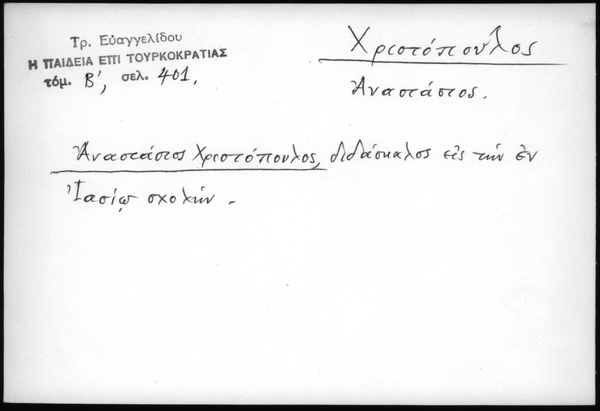 Τρ. Εὐαγγελίδου
Η ΠΑΙΔΕΙΑ ΕΠΙ ΤΟΥΡΚΟΚΡΑΤΙΑΣ
τόμ. Β', σελ. 401.
Χριστόπουλος
Ἀναστάσιος.
Ἀναστάσιος Χριστόπουλος, διδάσκαλος εἰς τὴν ἐν
Ἰασίῳ σχολήν.